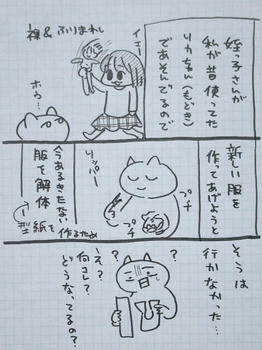 姪子さんが
私が昔使ってた
リカちゃん(もどき)
であそんでるので
イエー
裸&ふりまわし
ホウ…
新しい服を
作ってあげようと
リッパー
プチ
プチ
今あるきたない
服を解体
←型紙を作るため
そうは
行かなかった…
?
?
?
え?
何コレ?
どうなってるの?